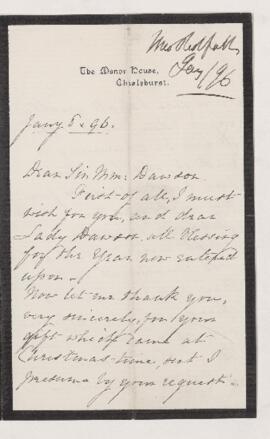 Mrs Redpath
Jany/96
The Manor House,
Chislehurst.
Jany 8. 96.
Dear Sir Wm: Dawson.
First of all, I must
wish for you, and dear
Lady Dawson, all blessing
for the Year now entered
upon.
Now let me thank you,
very sincerely, for your
gift which came at
Christmas-time, sent I
presume by your request.